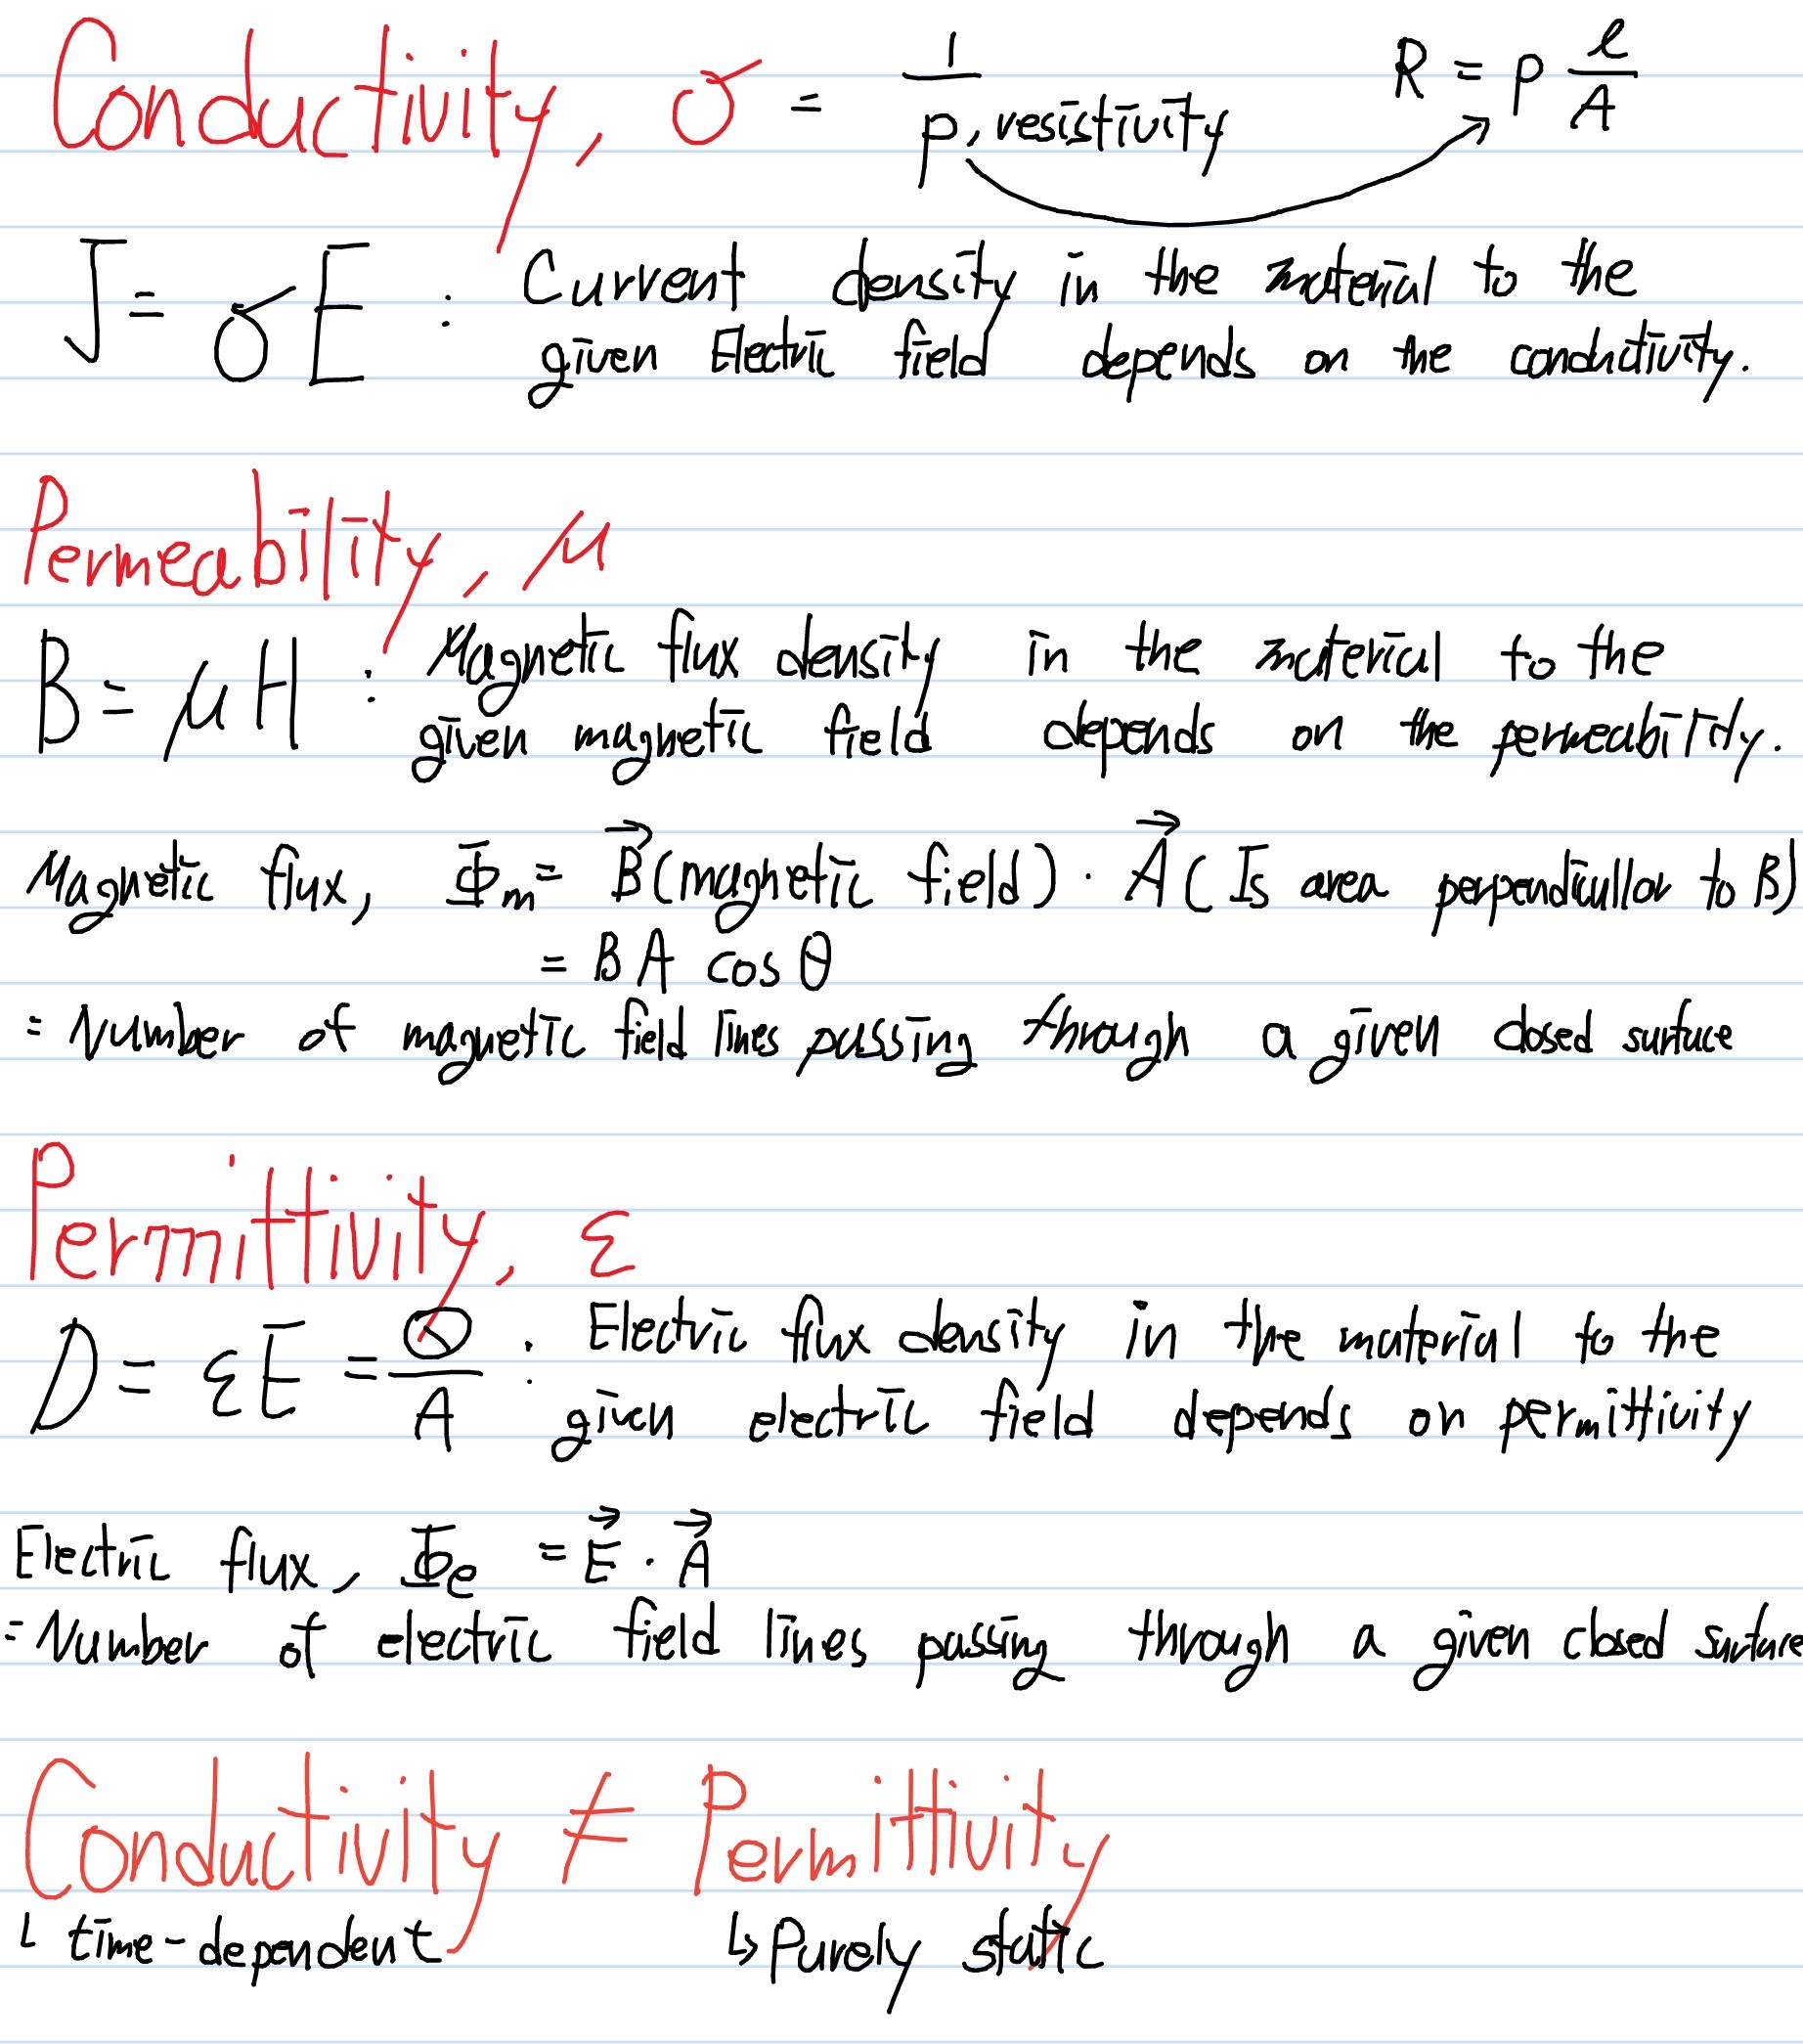 Conductivity, σ = 1/ρ, resistivity R = ρ ℓ/A
J = σE : Current density in the material to the
given Electric field depends on the conductivity.
Permeability, μ
B = μH : Magnetic flux density in the material to the
given magnetic field depends on the permeability.
Magnetic flux, Φm = B⃗ (magnetic field) · A⃗ (Is area perpendicullar to B)
= BA cos θ
= Number of magnetic field lines passing through a given closed surface
Permittivity, ε
D = εE = Q/A : Electric flux density in the material to the
given electric field depends on permittivity
Electric flux, Φe = E⃗ · A⃗
= Number of electric field lines passing through a given closed surface
Conductivity ≠ Permittivity
↳ time-dependent ↳ Purely static